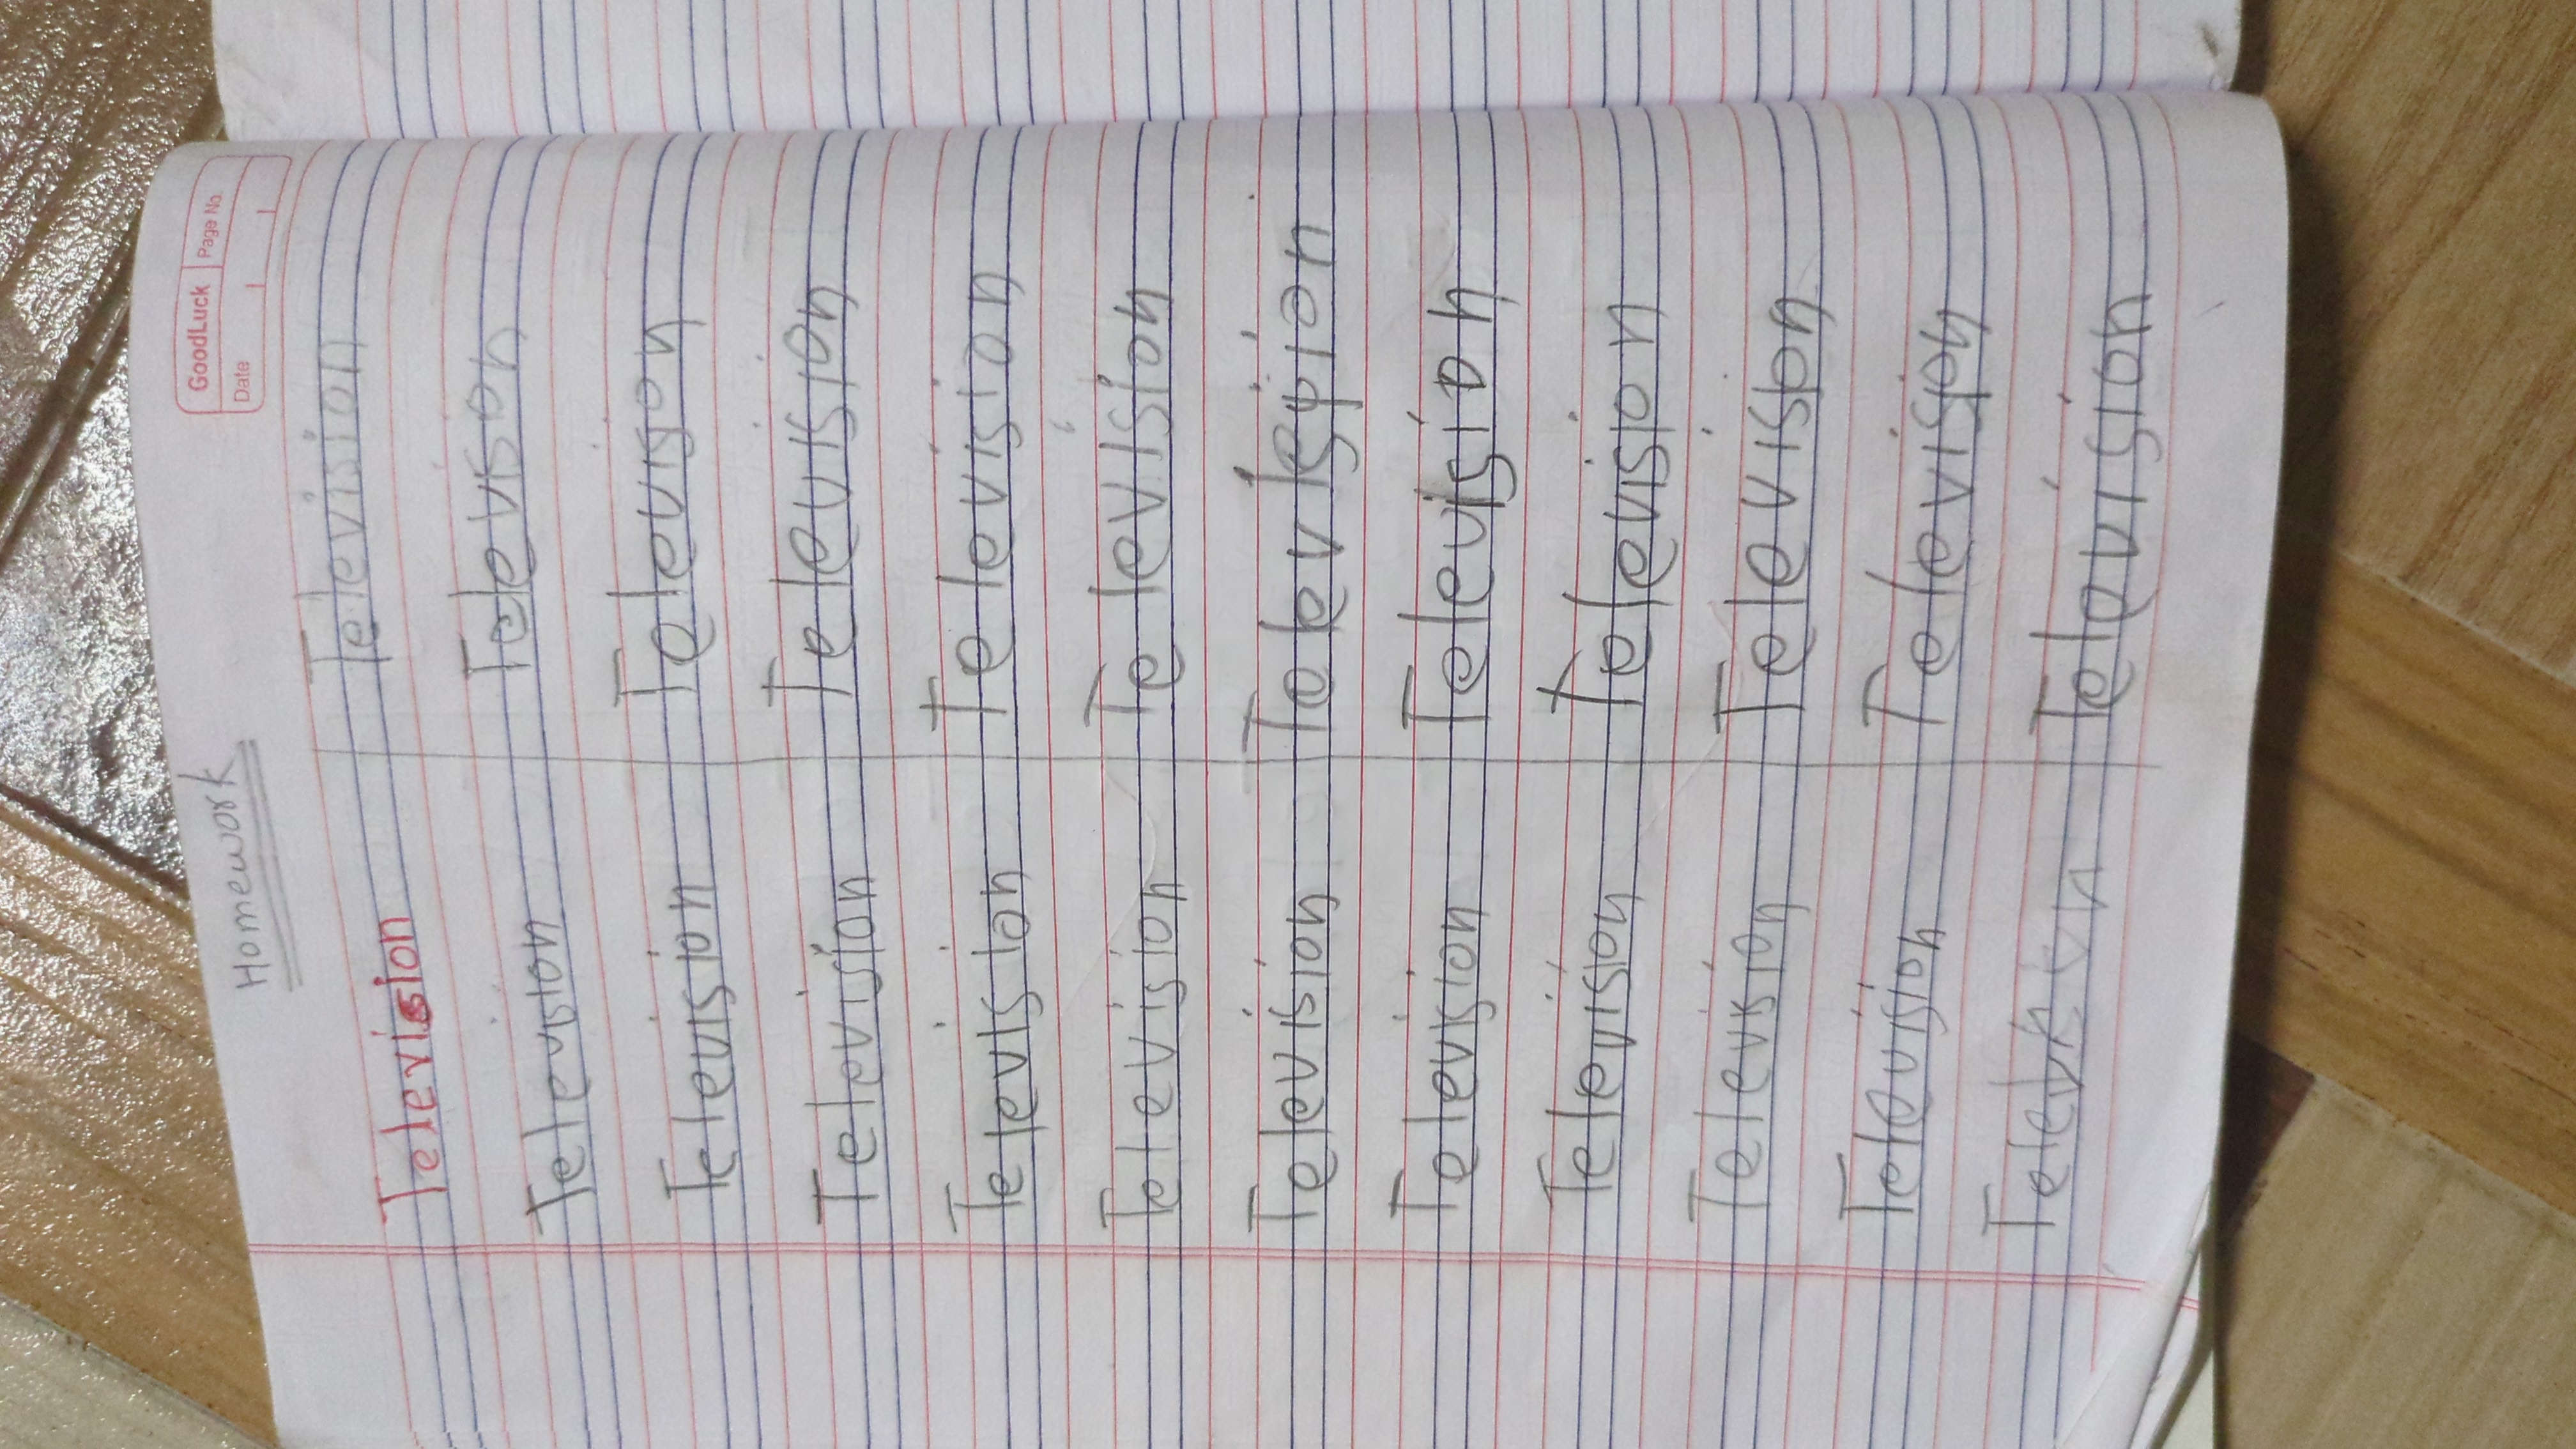 GoodLuck Page No.
Date
Homework
Television Television
Television Televison
Television Televison
Television Television
Television Television
Television Television
Television
Television Television
Television Television
Television Television
Television Television
Television